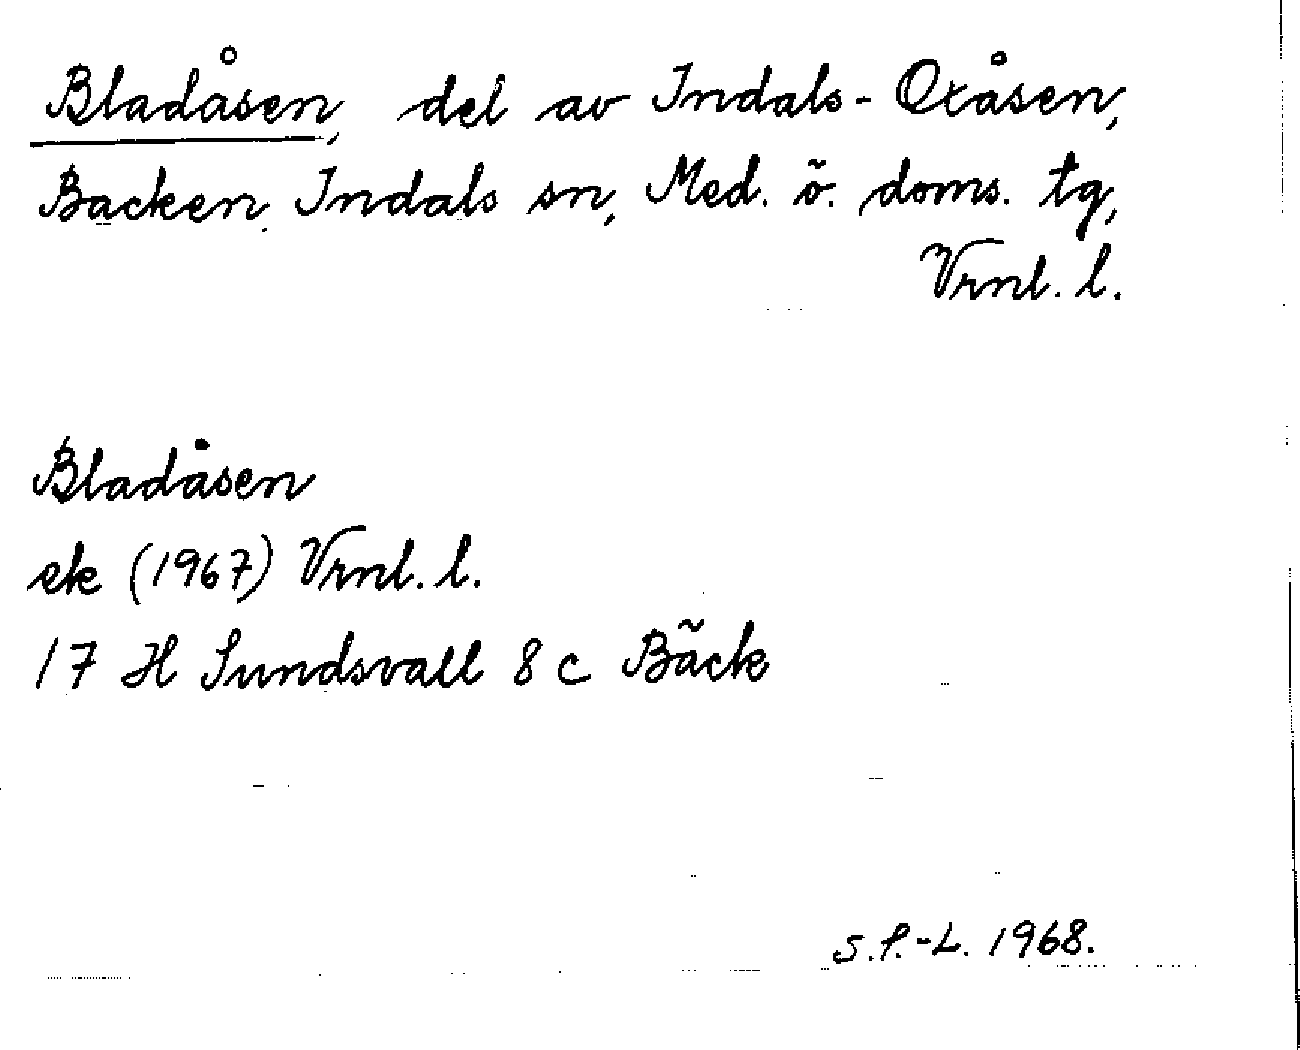 Bladåsen, del av Indals-Oxåsen,
Backen, Indals sn, Med. ö. doms. tg,
Vrnl. l.
Bladåsen
ek (1967) Vrnl. l.
17 H Sundsvall 8 c Bäck
S.P.-L. 1968.